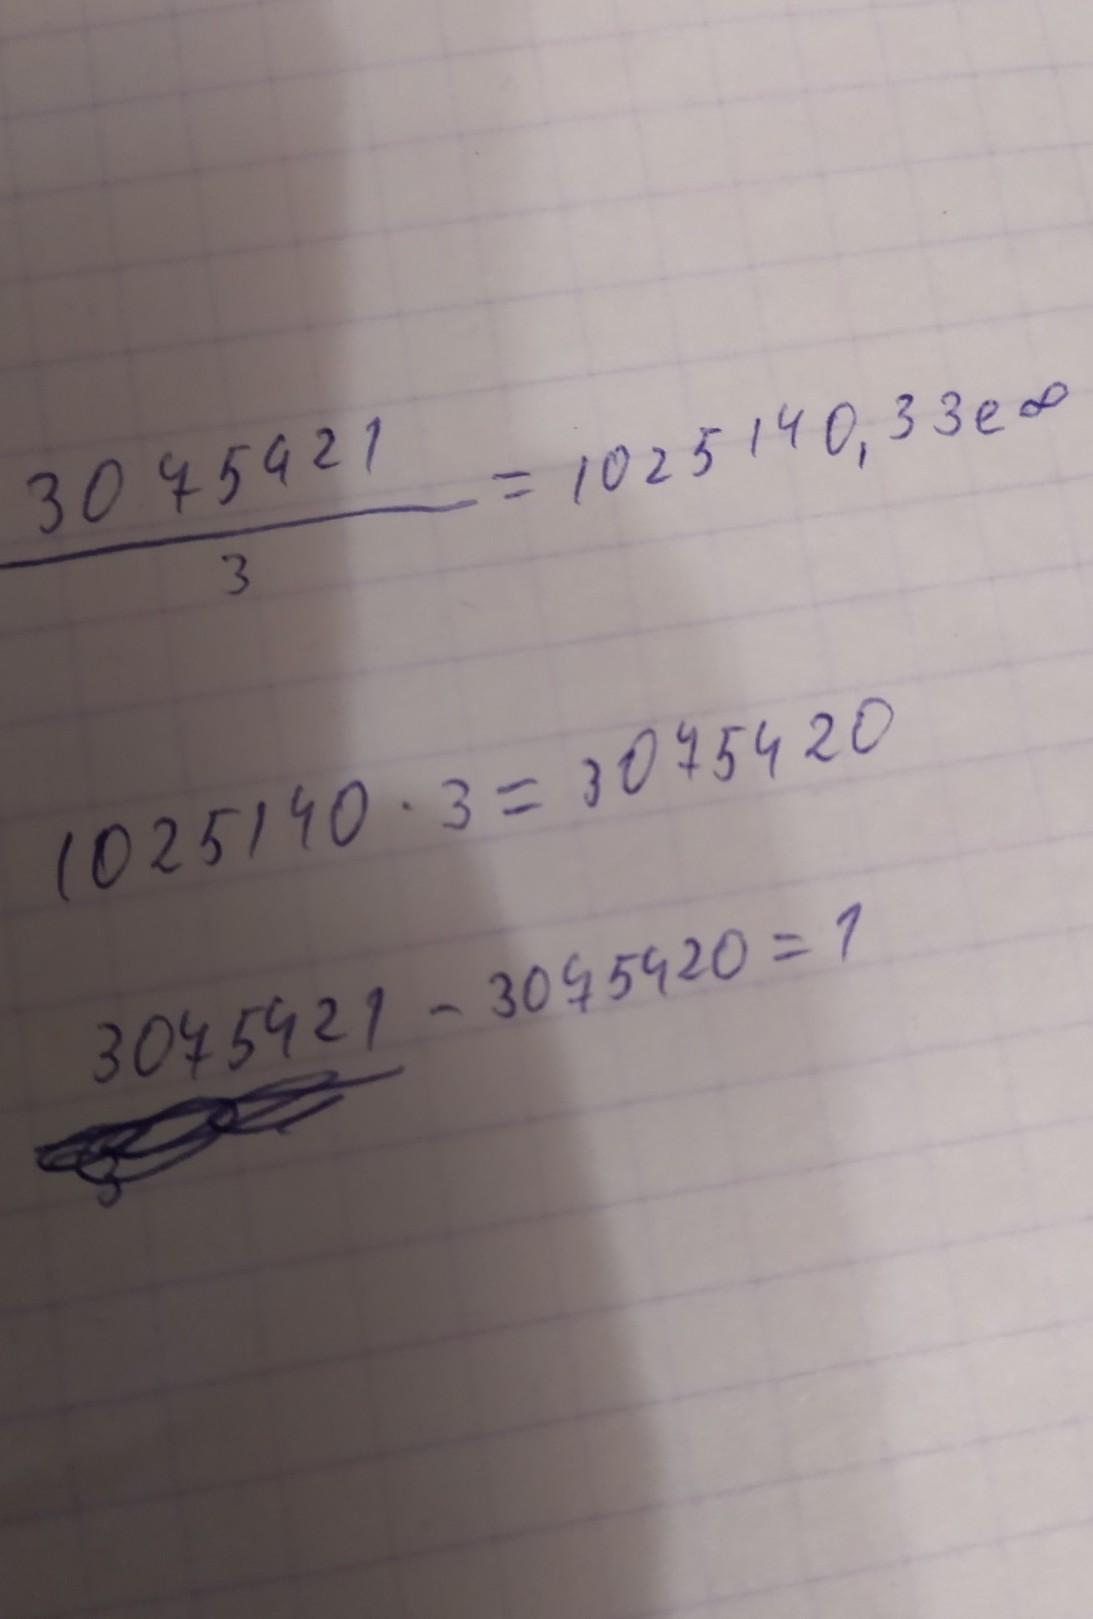 3075421
/3 = 1025140,33e∞
1025140 · 3 = 3075420
3075421 - 3075420 = 1
3